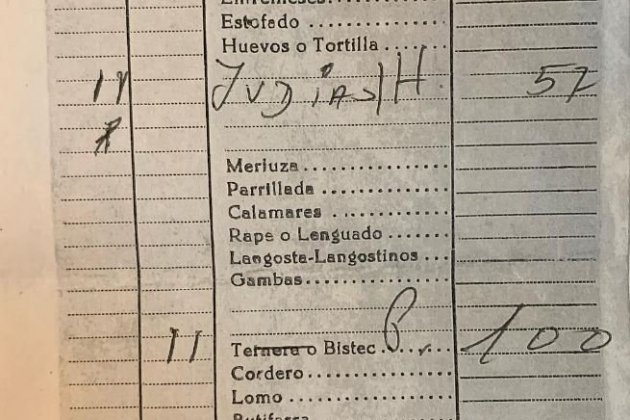 Entremeses
Estofado
Huevos o Tortilla
11 JUDIAS H. 57
Merluza
Parrillada
Calamares
Rape o Lenguado
Langosta-Langostinos
Gambas
11 Ternera o Bistec P. 100
Cordero
Lomo
Butifarra